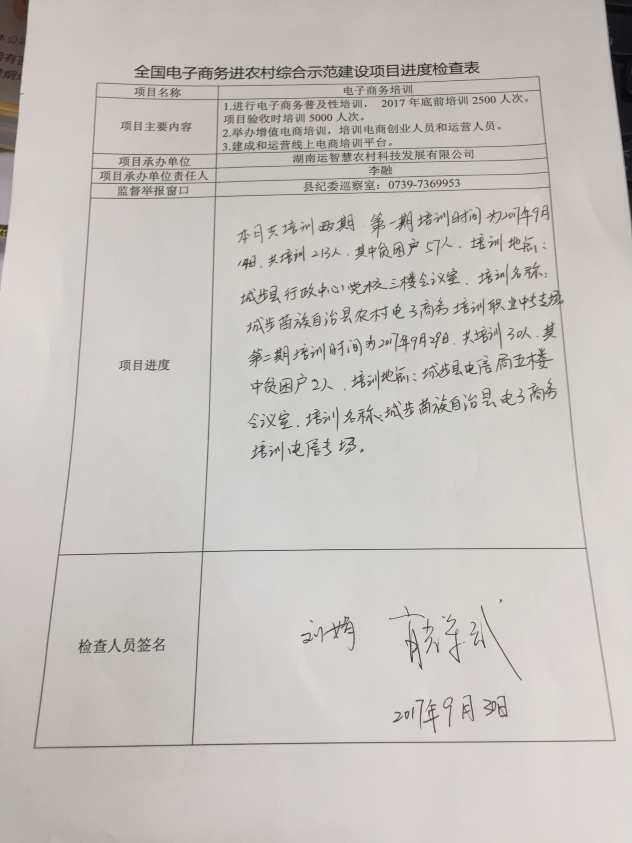 全国电子商务进农村综合示范建设项目进度检查表
项目名称
电子商务培训
项目主要内容
1.进行电子商务普及性培训， 2017 年底前培训 2500 人次。
项目验收时培训 5000 人次。
2.举办增值电商培训，培训电商创业人员和运营人员。
3.建成和运营线上电商培训平台。
项目承办单位
湖南运智慧农村科技发展有限公司
项目承办单位责任人
李融
监督举报窗口
县纪委巡察室：0739-7369953
项目进度
本月共培训两期 第一期培训时间为2017年9月
14日，共培训213人，其中贫困户57人，培训地点：
城步县行政中心党校三楼会议室，培训名称：
城步苗族自治县农村电子商务培训职业中专专场
第二期培训时间为2017年9月29日，共培训30人，其
中贫困户2人，培训地点：城步县电信局五楼
会议室，培训名称：城步苗族自治县电子商务
培训电信专场。
检查人员签名
刘娟
2017年9月30日